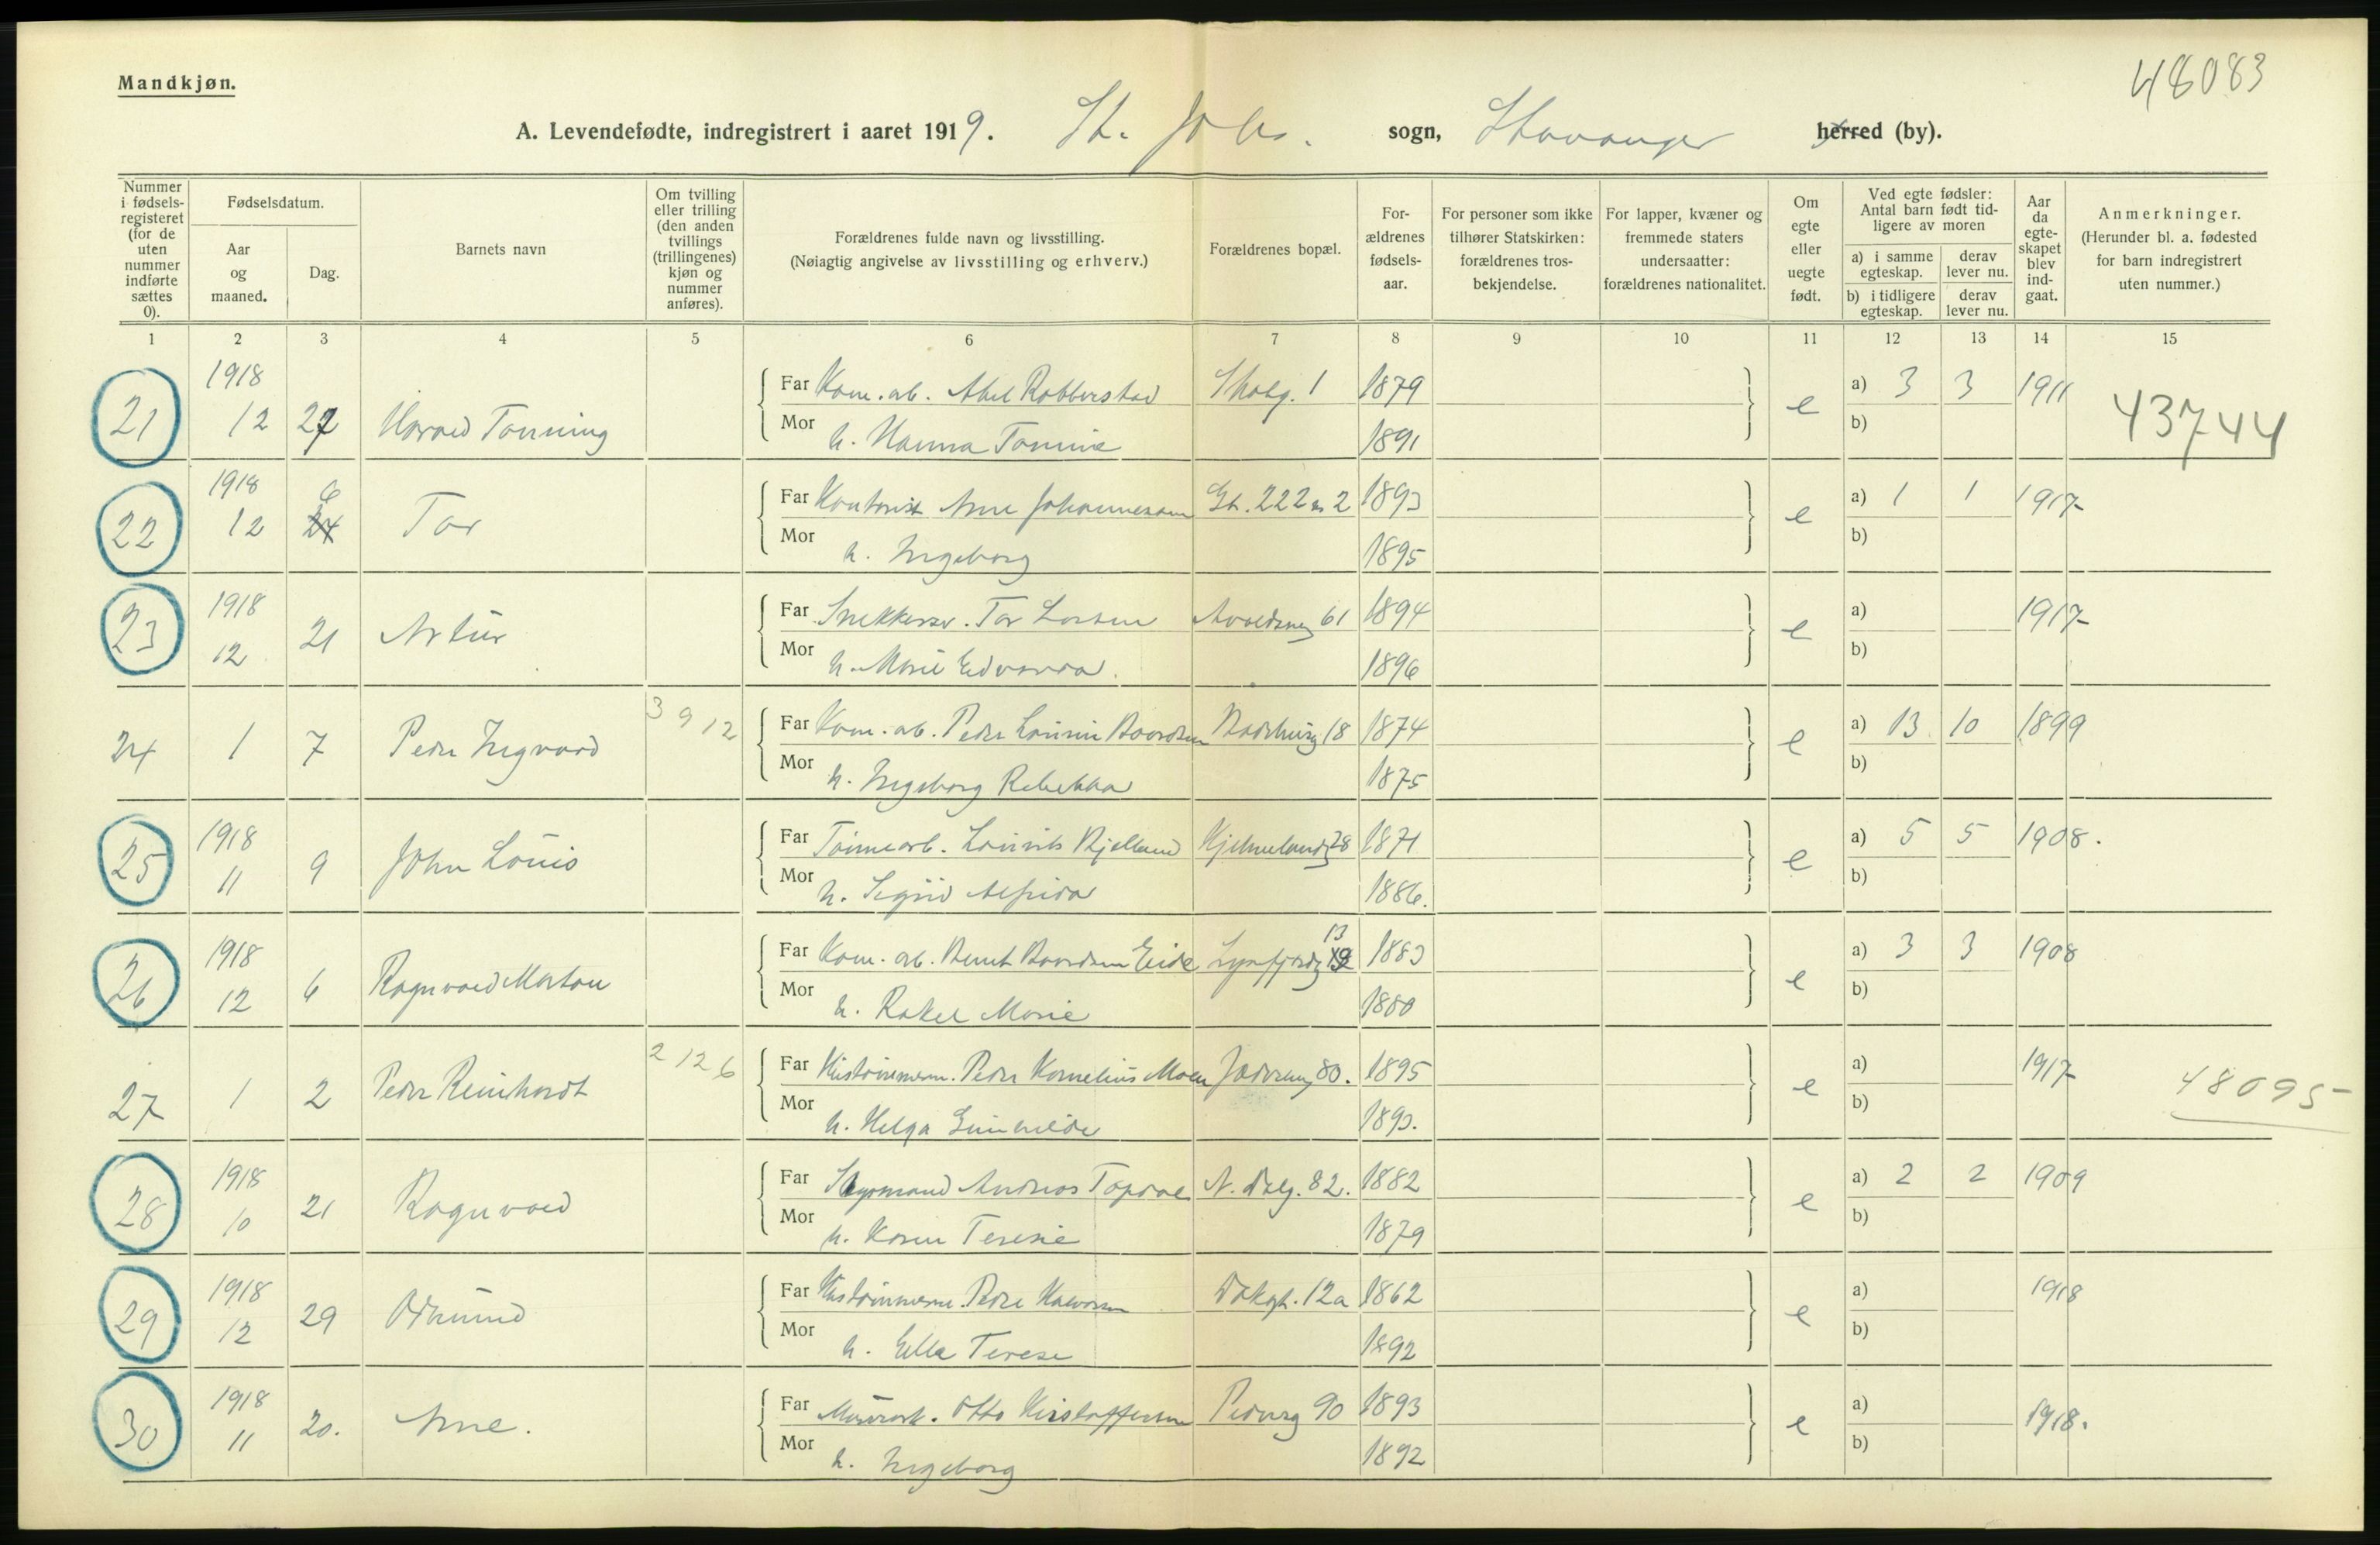 Mandkjøn.
48083
A. Levendefødte, indregistrert i aaret 1919. St. Johs. sogn, Stavanger herred (by).
Nummer i fødselsregisteret (for de uten nummer indførte sættes 0).
Fødselsdatum.
Aar og maaned.
Dag.
Barnets navn
Om tvilling eller trilling (den anden tvillings (trillingenes) kjøn og nummer anføres).
Forældrenes fulde navn og livsstilling.
(Nøiagtig angivelse av livsstilling og erhverv.)
Forældrenes bopæl.
Forældrenes fødselsaar.
For personer som ikke tilhører Statskirken: forældrenes trosbekjendelse.
For lapper, kvæner og fremmede staters undersaatter: forældrenes nationalitet.
Om egte eller uegte født.
Ved egte fødsler: Antal barn født tidligere av moren
a) i samme egteskap.
derav lever nu.
b) i tidligere egteskap.
derav lever nu.
Aar da egteskapet blev indgaat.
Anmerkninger.
(Herunder bl. a. fødested for barn indregistrert uten nummer.)
1 2 3 4 5 6 7 8 9 10 11 12 13 14 15
21 1918 12 27 Harald Tonning Far Kom. arb. Abel Robberstad 1 1879 e a) 3 3 1911 43744
Mor h. Hanna Tomine 1891 b)
22 1918 12 6 Tor Far Kontorist Arne Johannesen 222 2 1893 e a) 1 1 1917
Mor h. Ingeborg 1895 b)
23 1918 12 21 Artur Far Snekkersv. Tor Larsen 61 1894 e a) 1917
Mor h. Marie Edvarda 1896 b)
24 1 7 Peder Ingvard 3 9 12 Far Kom. arb. Peder Baardsen 18 1874 e a) 13 10 1899
Mor h. Ingeborg Rebekka 1875 b)
25 1918 11 9 John Louis Far Tømearb. Kjelland Hjelmelandg 28 1871 e a) 5 5 1908.
Mor h. Sigrid Alfrida 1886. b)
26 1918 12 6 Ragnvald Morton Far Kom. arb. Bernt Baardsen Eide Lysefjordg 13 1883 e a) 3 3 1908
Mor h. Rakel Marie 1880 b)
27 1 2 Peder Reinhardt 2 12 6 Far Peder Kornelius Moen 80. 1895 e a) 1917 48095
Mor h. Helga 1893. b)
28 1918 10 21 Ragnvald Far Styrmand Andreas Topdal N. Dalg. 82. 1882 e a) 2 2 1909
Mor h. Karen Teresie 1879 b)
29 1918 12 29 Odmund Far Peder Halvorsen 12a 1862 e a) 1918
Mor h. Ella Terese 1892 b)
30 1918 11 20. Arne. Far Murerarb. Otto Kristoffersen Pedersg 90 1893 e a) 1918.
Mor h. Ingeborg 1892 b)